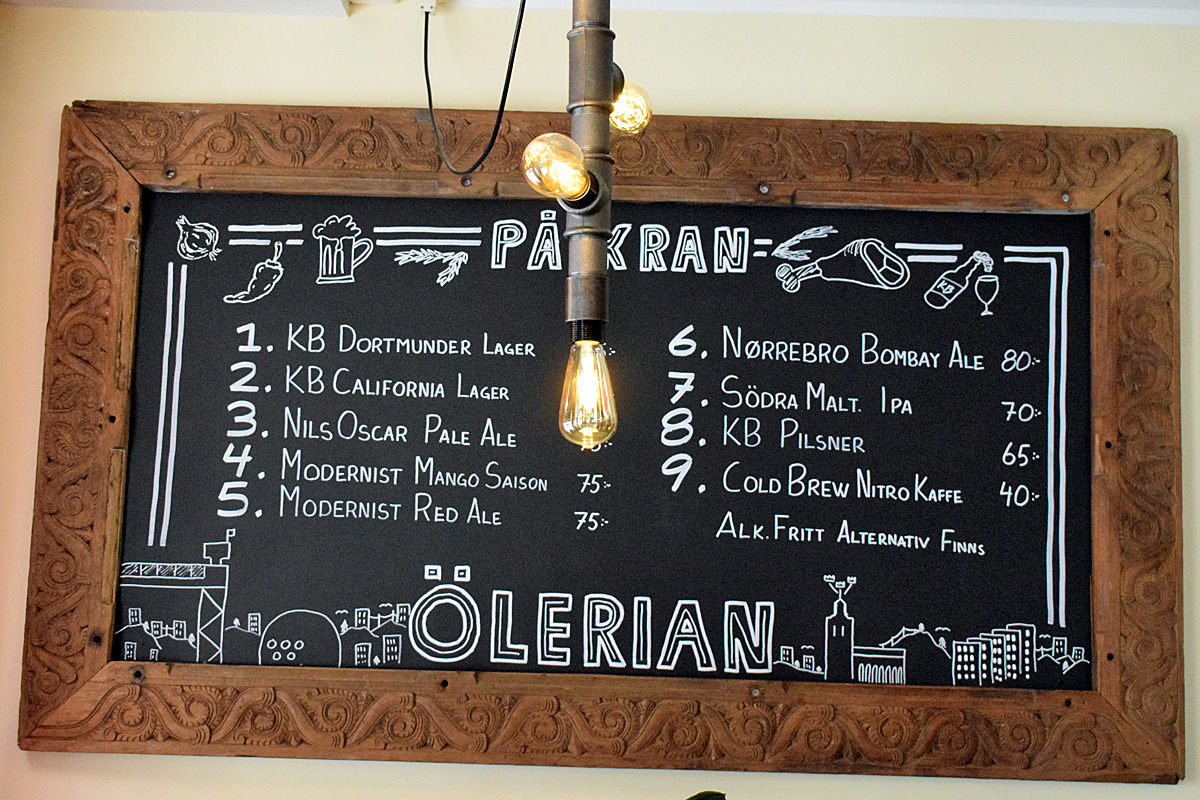 PÅ KRAN
KB
1. KB DORTMUNDER LAGER
2. KB CALIFORNIA LAGER
3. NILS OSCAR PALE ALE
4. MODERNIST MANGO SAISON 75:-
5. MODERNIST RED ALE 75:-
6. NØRREBRO BOMBAY ALE 80:-
7. SÖDRA MALT. IPA 70:-
8. KB PILSNER 65:-
9. COLD BREW NITRO KAFFE 40:-
ALK. FRITT ALTERNATIV FINNS
ÖLERIAN